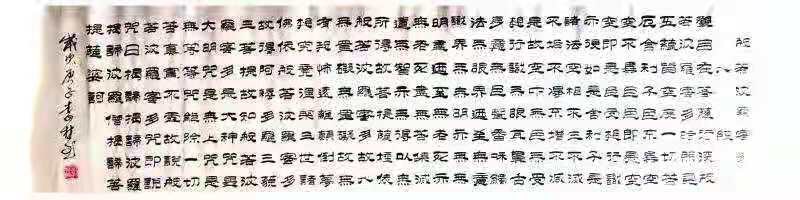 般若波羅蜜多
觀自在菩薩行深般
若波羅蜜多時照見
五蘊皆空度一切苦
厄舍利子色不異空
空不異色色即是空
空即是色受想行識
亦復如是舍利子是
諸法空相不生不滅
不垢不淨不增不減
是故空中無色無受
想行識無眼耳鼻舌
身意無色聲香味觸
法無眼界乃至無意
識界無無明亦無無
明盡乃至無老死亦
無老死盡無苦集滅
道無智亦無得以無
所得故菩提薩埵依
般若波羅蜜多故心
無罣礙無罣礙故無
有恐怖遠離顛倒夢
想究竟涅槃三世諸
佛依般若波羅蜜多
故得阿耨多羅三藐
三菩提故知般若波
羅蜜多是大神咒是
大明咒是無上咒是
無等等咒能除一切
苦真實不虛故說般
若波羅蜜多咒即說
咒曰揭諦揭諦波羅
揭諦波羅僧揭諦菩
提薩婆訶
歲次庚子李